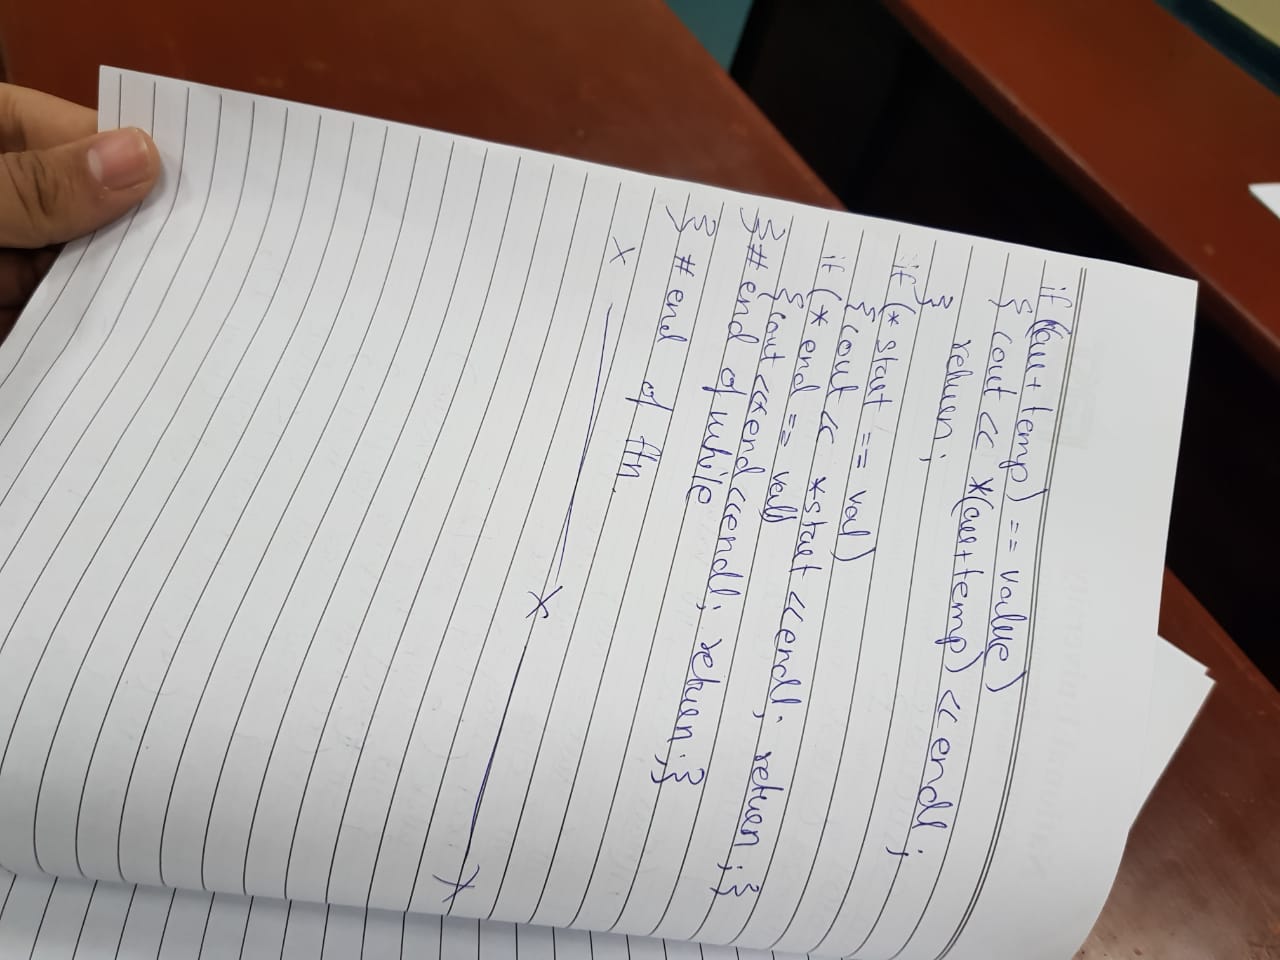 if (arr + temp) == value)
{ cout << *(arr+temp) << endl ;
return ;
}
if (* start == val)
{ cout << *start << endl; return ;}
if (* end == val)
{ cout << *end << endl; return ;}
} # end of while
} # end of ftn.